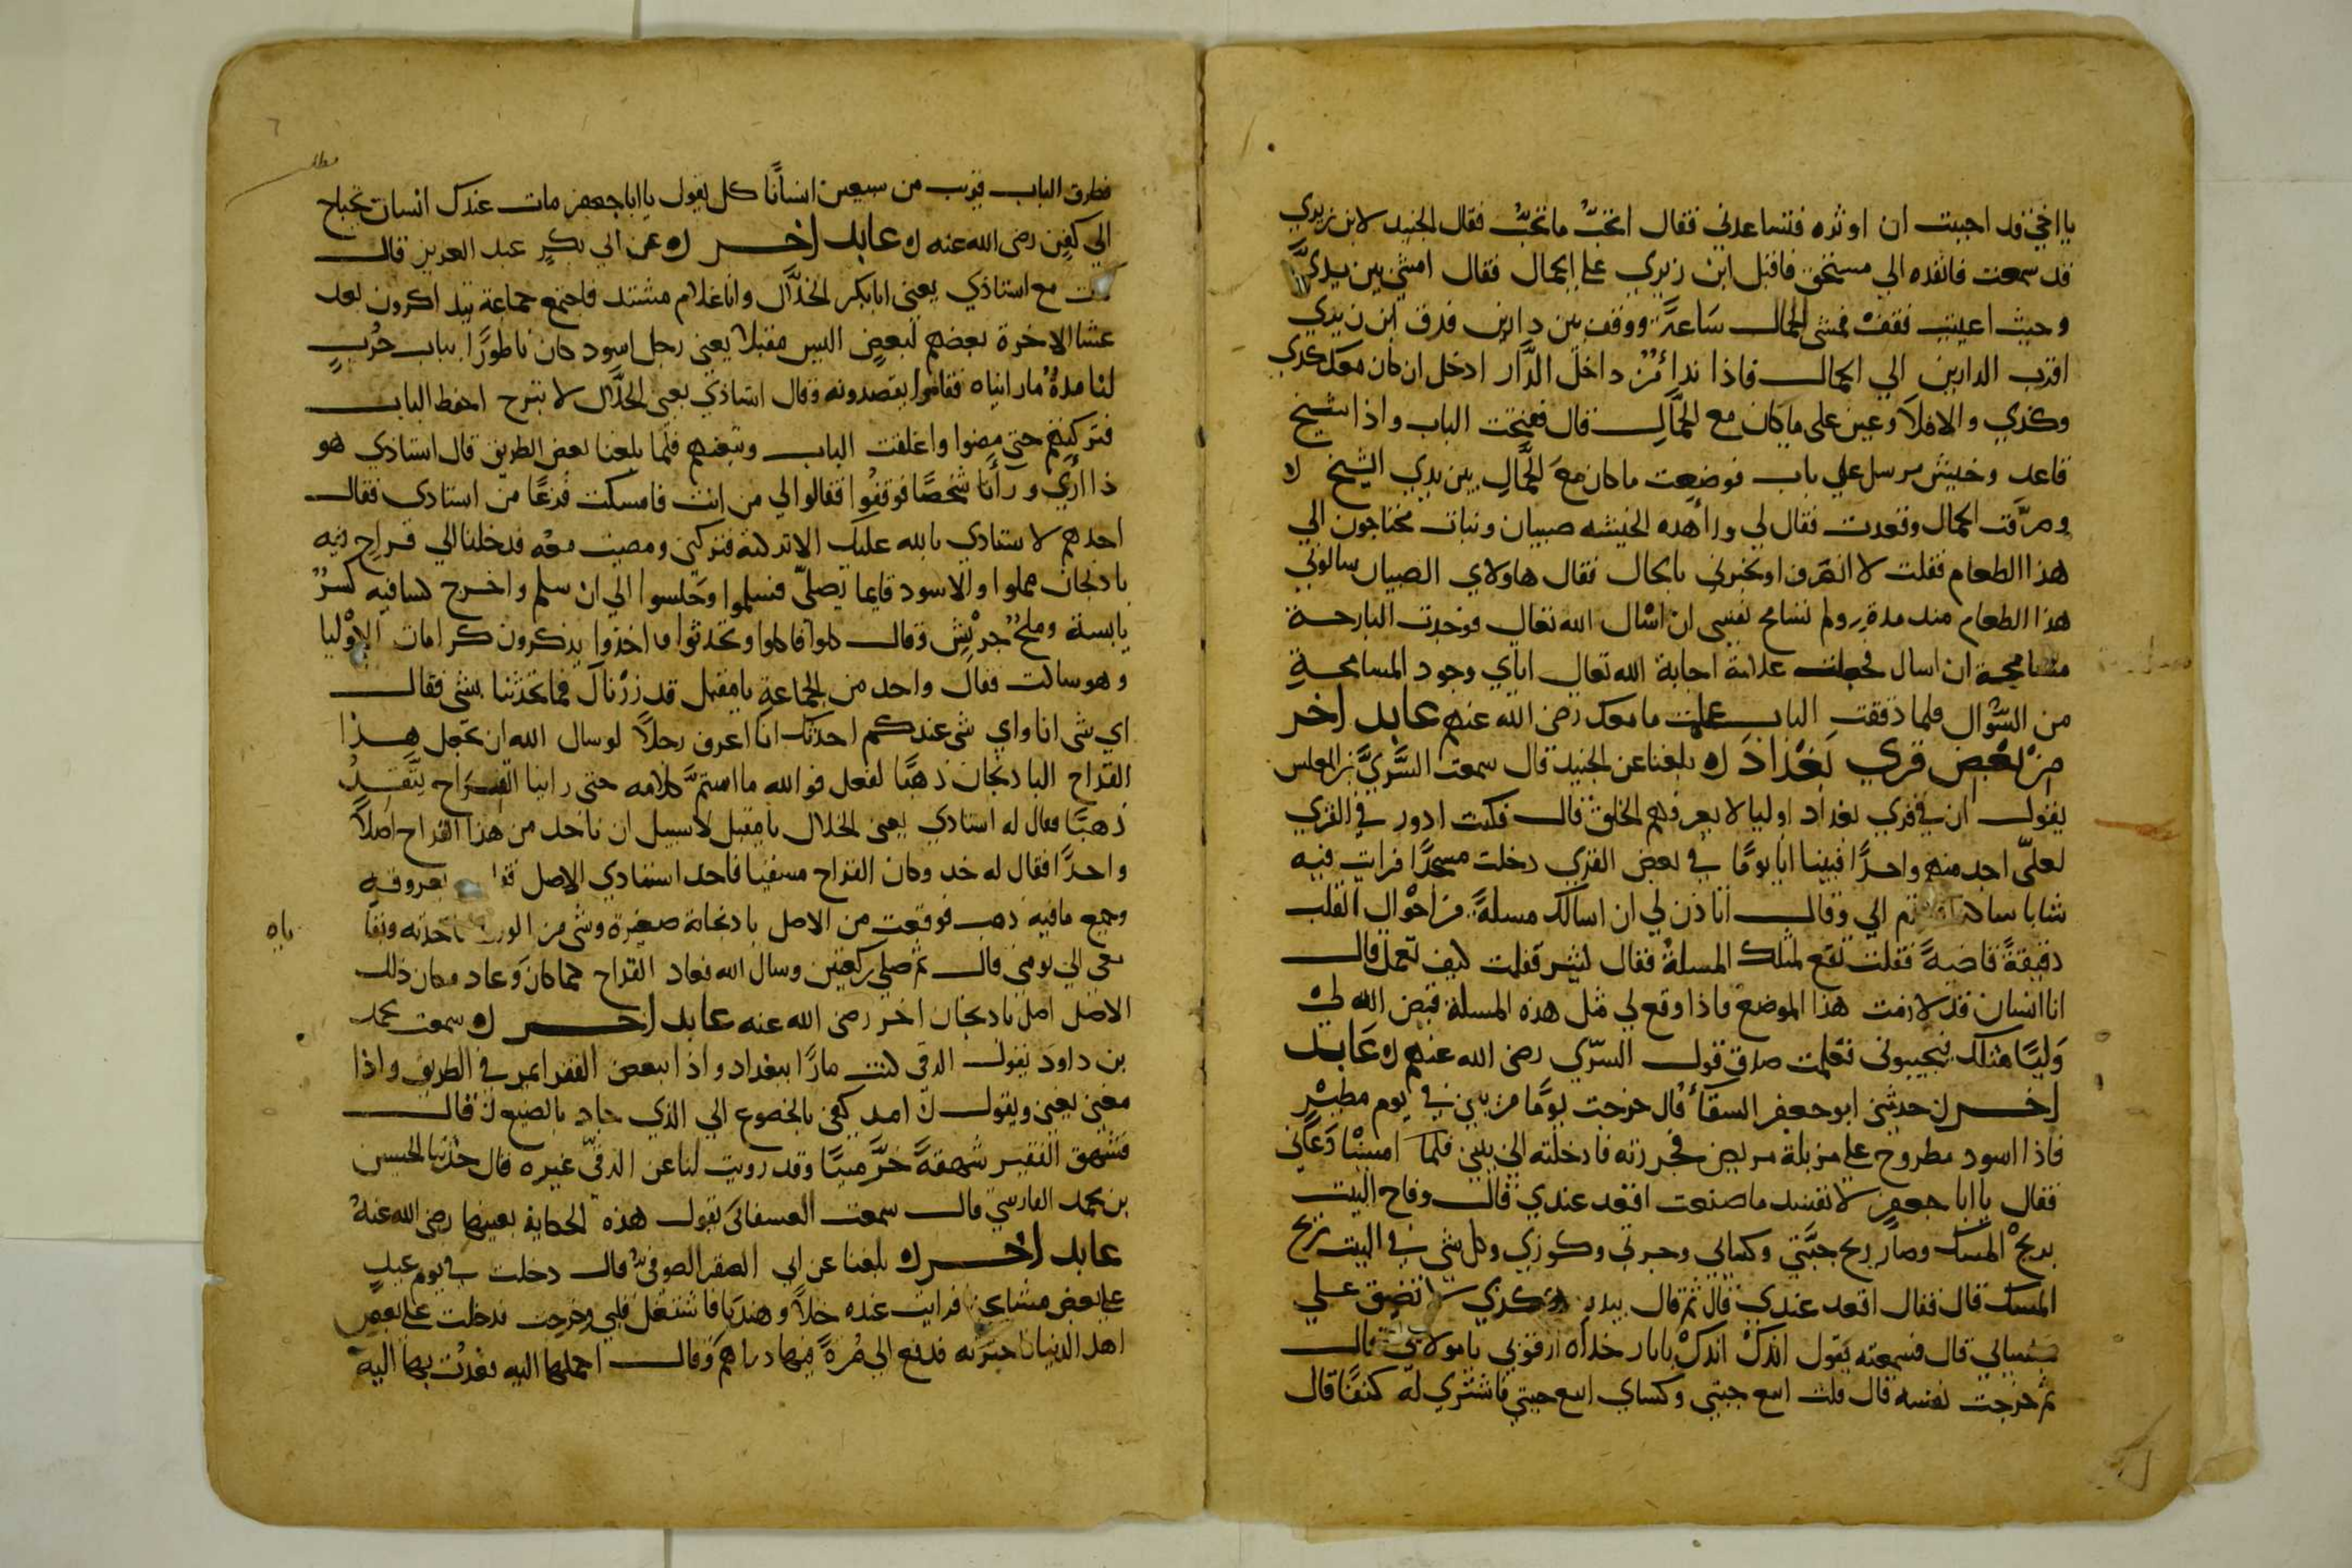 يا اخي قد احببت ان اوثره فتساعدني فقال اتحبّ ما تحبّ فقال الجنيد لابن زيري
قد سمعت فانفده الي مستحق فاقبل ابن زيري علي الجمال فقال امشي بين يديّ
وحيث اعييت فقف فمشي الجمال ساعةً ووقف بين دارين فدق ابن زيري
اقرب الدارين الي الجمال فاذا نداءٌ من داخل الدَّار ادخل ان كان معك كدي
وكدي والا فلا وعين على ما كان مع الجمّال قال ففتحت الباب واذا شيخ
قاعد وخيش مرسل علي باب فوضعت ما كان مع الجمّال بين يدي الشيخ
وصرّفت الجمال وقعدت فقال لي ورا هده الخيشه صبيان وبنات محتاجون الي
هذا الطعام فقلت لا انصرف او تخبرني بالحال فقال هاولاي الصبيان سالوني
هذا الطعام مند مدةٍ ولم تسامح نفسي ان اسال الله تعالي فوجدت البارحة
مسامحة ان اسال فجعلت علامة اجابة الله تعالي اياي وجود المسامحةِ
من السّؤال فلما دققت الباب علمت ما معك رضى الله عنهم عابد اخر
من بعض قري بغداد بلغنا عن الجنيد قال سمعت السَّريَّ بن المغلس
يقول ان في قري بغداد اوليا لا يعرفهم الخلق قال فكنت ادور في القري
لعلّي اجد منهم واحدًا فبينا انا يومًا في بعض القري دخلت مسجدًا فرايت فيه
شابا ساكتا الي وقال اتاذن لي ان اسالك مسلةً من احوال القلب
دقيقةً فقلت تقع لمثلك المسلةُ فقال ليس فقلت كيف تعمل قال
انا انسان قد لازمت هذا الموضع فاذا وقع لي مثل هذه المسلة قيض الله لي
وَليًا مثلك فيجيبوني فعلمت صدق قول السرّي رضى الله عنهم عَابد
اخر حدثني ابو جعفر السقآ قال خرجت يومًا من بيتي في يوم مطيرٍ
فاذا اسود مطروح علي مزبلة مريض فجررته فادخلته الي بيتي فلما امسينا دَعاني
فقال يا ابا جعفر لا تفسد ما صنعت اقعد عندي قال وفاح البيت
بريح المسك وصار ريح جبّتي وكسايي وجرتي وكوزي وكل شي في البيت ريح
المسك قال فقال اقعد عندي قال ثم قال بيده كدي لا تضيق علي
جلسايي قال فسمعته يقول اندكْ اندكْ يا بار خداه ارفق بي يا مولاي قال
ثم خرجت نفسه قال قلت ابيع جبتي وكساي ابيع جبتي فاشتري له كفنًا قال
مطلب
فطرق الباب قريب من سبعين انسانًا كل يقول يا ابا جعفر مات عندك انسان تحتاج
الي كفن رضى الله عنه عابد اخر عن ابي بكرٍ عبد العزيز قال
كنت مع استاذي يعنى ابا بكر الخلّال وانا غلام مشتد فاجتمع جماعة يتداكرون بعد
عشا الاخرة بعضهم لبعض اليس مقبلا يعني رجل اسود كان ناطورًا بباب حرْبٍ
لنا مدةٌ ما رايناه فقاموا يقصدونه وقال استاذي يعني الخلّال لا تبرح احفظ الباب
فتركتهم حتي مضوا واغلقت الباب وتبعتهم فلما بلغنا بعض الطريق قال استاذي هو
ذا أري ورأنا شخصًا فوقفُوا فقالوا لي من انت فامسكت فزعًا من استادي فقال
احدهم لاستادي بالله عليك الا تركته فتركني ومضيت معه فدخلنا الي قراح فيه
بادنجان مملوا والاسود قايما يصلّي فسلموا وجلسوا الي ان سلم واخرج كسا فيه كسرٌ
يابسة وملحٌ جريْش وقال كلوا فاكلوا وتحدثوا واخذوا يذكرون كرامات الاوْليا
وهو ساكت فقال واحد من الجماعة يا مقبل قد زرناك فما تحدثنا بشي فقال
اي شي انا واي شي عندكم احدثكم انا اعرف رجلاً لو سال الله ان يجعل هذا
القراح البادنجان ذهبًا لفعل فوالله ما استتمَّ كلامه حتى راينا القراح يتَّقِدُ
ذهبًا فقال له استادي يعني الخلال يا مقبل لا سبيل ان ناخد من هذا القراح اصلاً
واحدًا فقال له خد وكان القراح مسقيا فاخد استادي الاصل بعروقه
وجمع ما فيه ذهب فوقعت من الاصل بادنجانة صغيرة وشي من الورق فاخدته وبقا
ياه
معي الي يومي قال ثم صلي ركعتين وسال الله فعاد القراح كما كان وَعاد مكان ذلك
الاصل اصل بادنجان اخر رضى الله عنه عابد اخر سمعت محمد
بن داود يقول الدقي كنت مارًا ببغداد واذا ببعض الفقرا يمر في الطريق واذا
مغني يغني ويقول امد كفي بالخضوع الي الذي جاد بالصنيع قال
فشهق الفقير شهقةً خرَّ ميتًا وقد رويت لنا عن الدقّي غيره قال حدثنا الحسين
بن محمد الفارسي قال سمعت يقول هذه الحكاية بعينها رضى الله عنهُ
عابد اخر بلغنا عن ابي الصقر الصوفي قال دخلت في يوم عيدٍ
علي بعض مشايخي فرايت عنده خلاً وهندبا فاشتغل قلبي وخرجت فدخلت علي بعض
اهل الدنيا اخبرته فدفع الي صُرةً فيها دراهم وقال احملها اليه فعدْت بها اليه